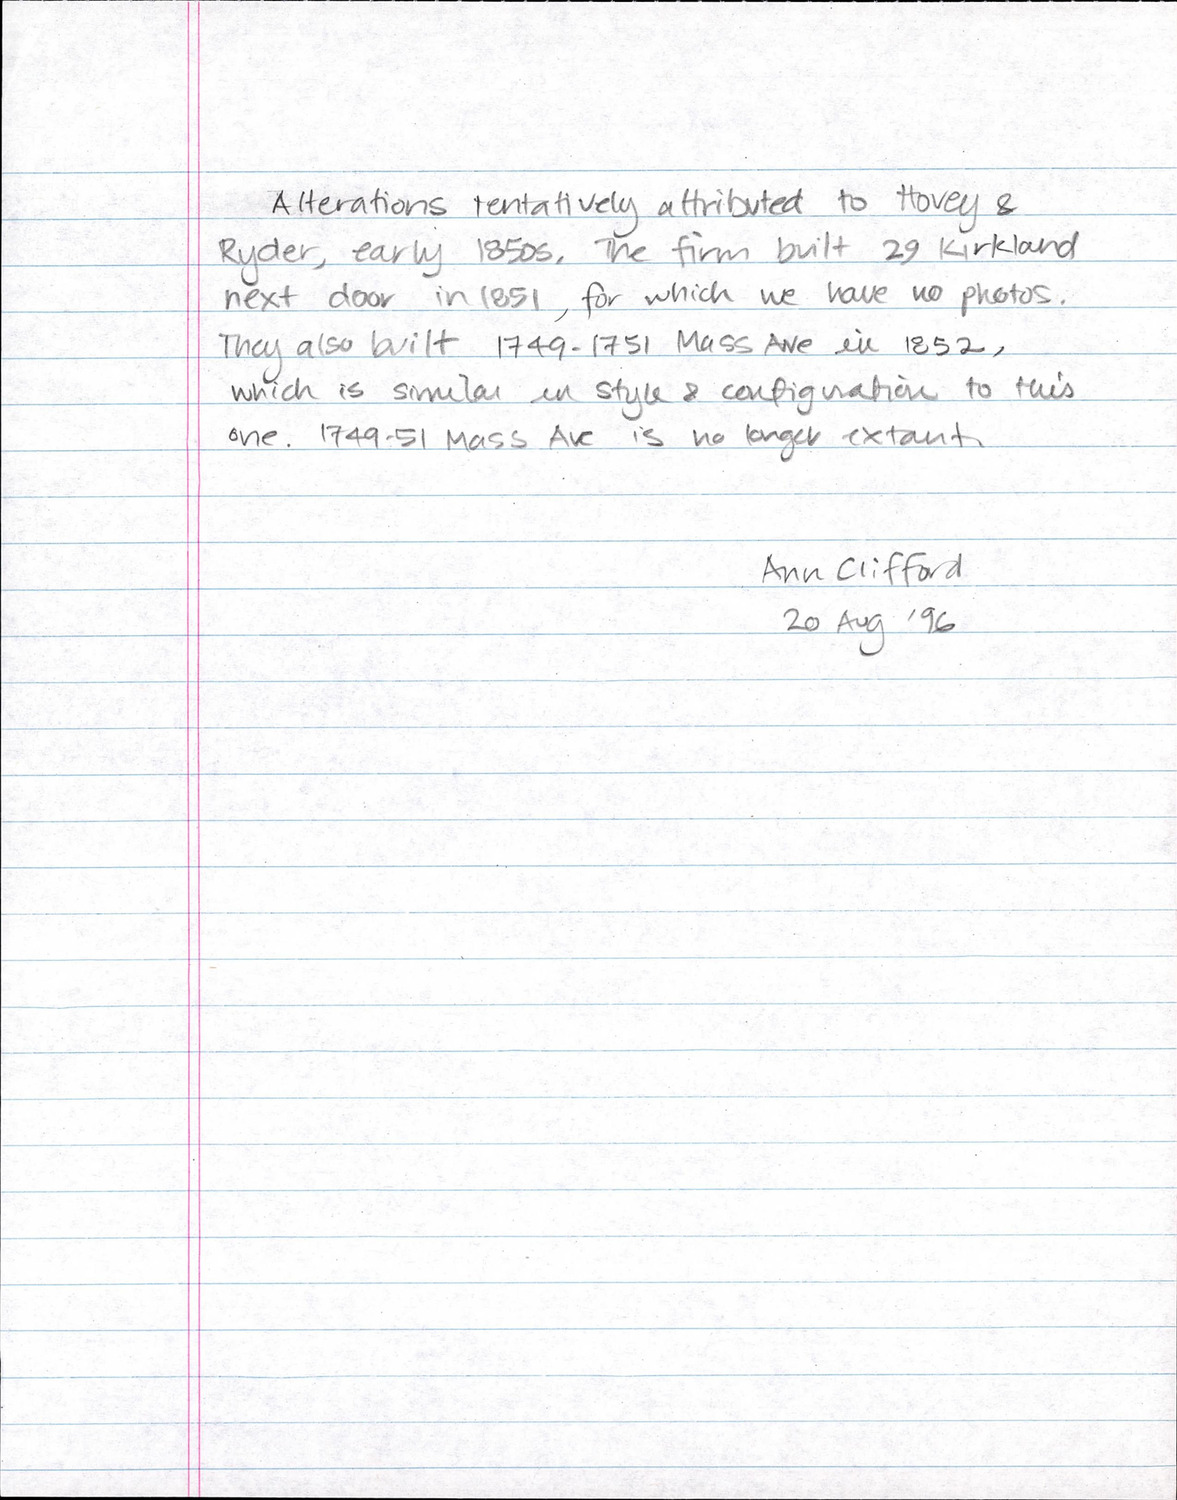 Alterations tentatively attributed to Hovey &
Ryder, early 1850s. The firm built 29 Kirkland
next door in 1851, for which we have no photos.
They also built 1749-1751 Mass Ave in 1852,
which is similar in style & configuration to this
one. 1749-51 Mass Ave is no longer extant.
Ann Clifford
20 Aug '96